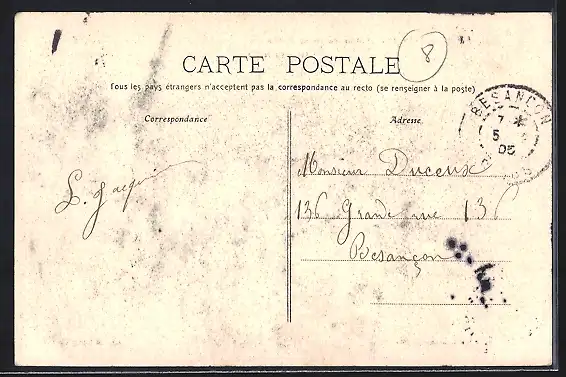 CARTE POSTALE
8
Tous les pays étrangers n'acceptent pas la correspondance au recto (se renseigner à la poste)
Correspondance
Adresse
BESANÇON
7
5
05
Monsieur Duceux
136 Grande rue 136
Besançon
L. Jacquin